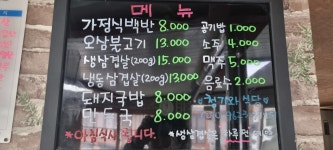 메 뉴
가정식백반 8.000 공기밥 1.000
오삼불고기 13.000 소주 4.000
생삼겹살(200g) 15.000 맥주 5.000
냉동삼겹살(200g) 13000 음료수 2.000
돼지국밥 8.000
8.000
*아침식사 됩니다. *생삼겹살은 하루전